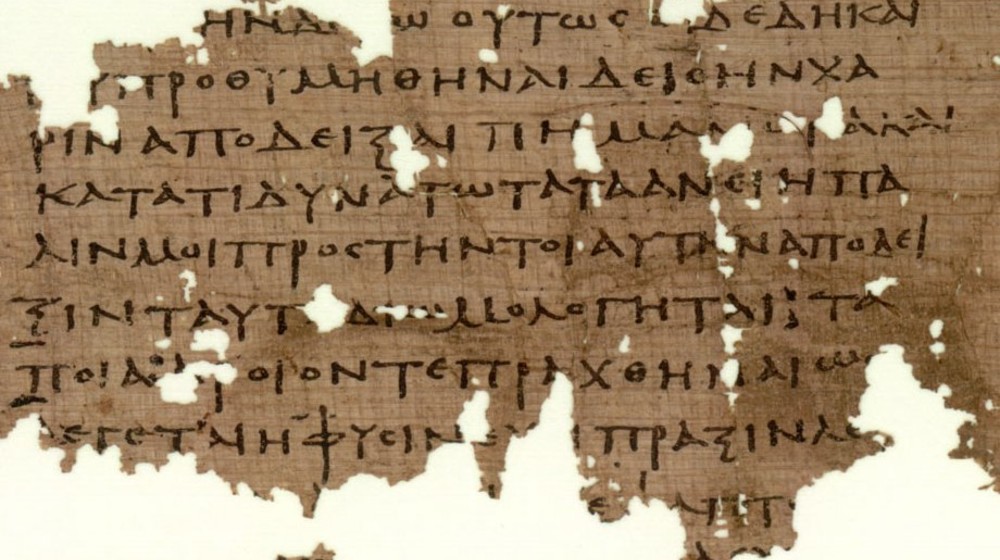 ΗΝΔ Ω ΟΥΤΩϹ ΔΕΔΗΚΑΙ
ΠΡΟΘΥΜΗΘΗΝΑΙ ΔΕΙ ϹΗΝ ΧΑ
ΡΙΝ ΑΠΟΔΕΙΞΑΙ ΠΗ ΜΑΛ ΚΑΙ
ΚΑΤΑ ΤΙ ΔΥΝΑΤΩΤΑΤΑ ΑΝ ΕΙΗ ΠΑ
ΛΙΝ ΜΟΙ ΠΡΟϹ ΤΗΝ ΤΟΙΑΥΤΗΝ ΑΠΟΔΕΙ
ΞΙΝ ΤΑΥΤ ΔΙΟΜΟΛΟΓΗΤΑΙ: ΤΑ
ΠΟΙΑ: ΑΡ ΟΙΟΝ ΤΕ ΠΡΑΧΘΗΝΑΙ ΩϹ
ΛΕΓΕΤΑΙ Η ΦΥϹΙΝ ΕΧΕΙ ΠΡΑΞΙΝ ΛΕ